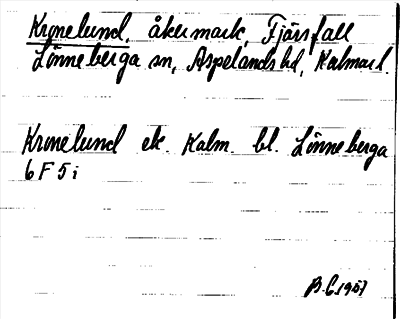 Kronelund, åkermark, Fjärsfall
Lönneberga sn, Aspelands hd, Kalmar l.
Kronelund ek. Kalm. bl. Lönneberga
6 F 5 i
B.G. 1957